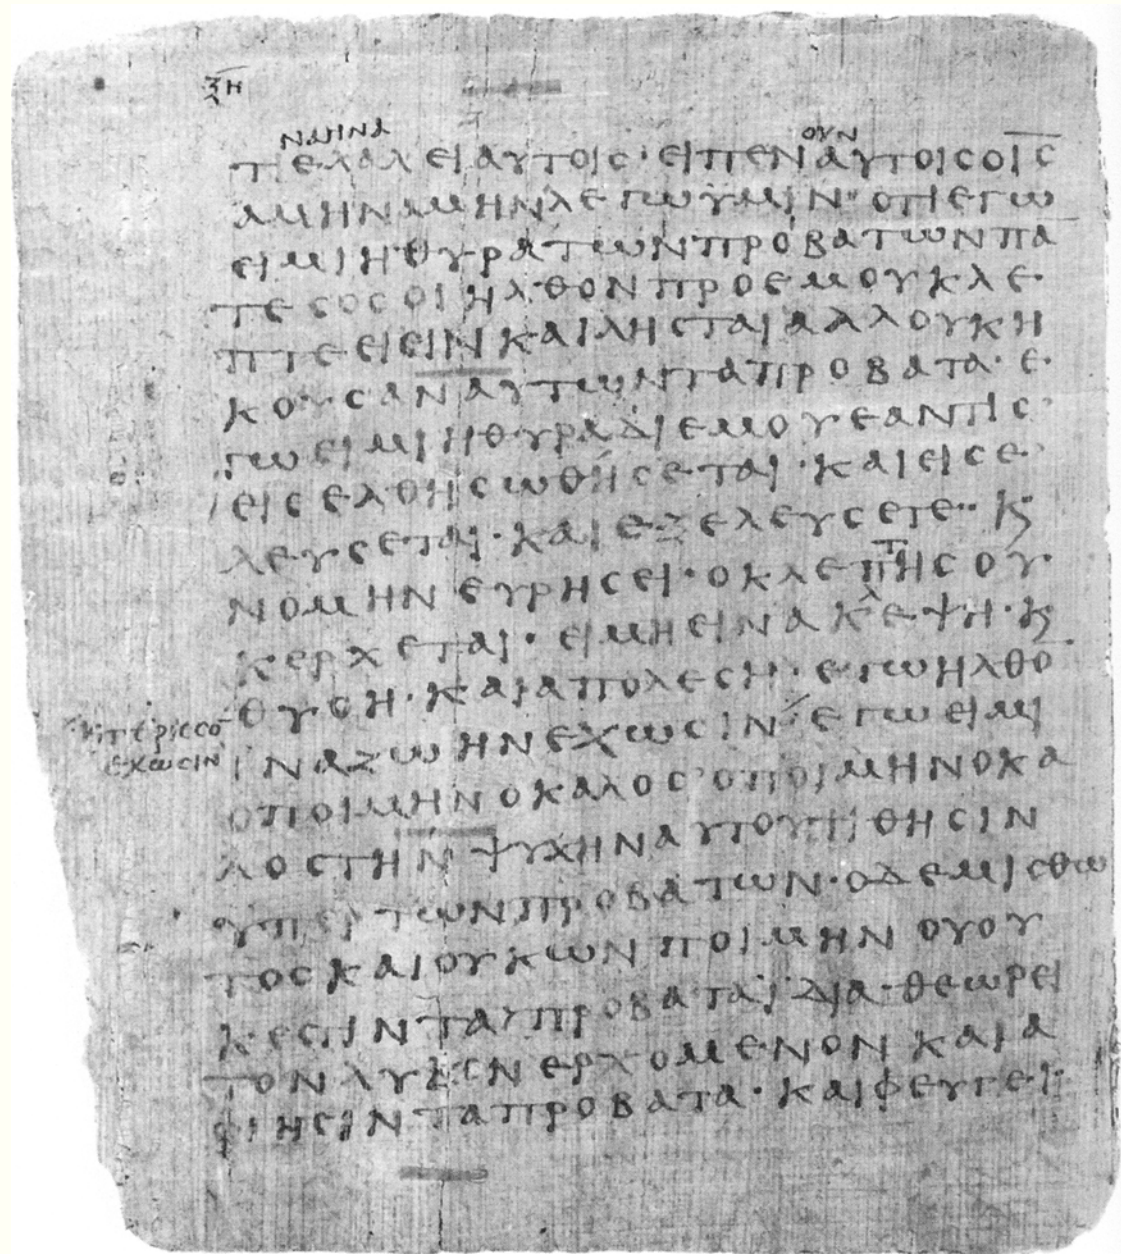 ξη
ναμινα ουν
τιελαλειαυτοις·ειπεναυτοιςοις
αμηναμηνλεγωυμιν·οτιεγω
ειμιηθυρατωνπροβατωνπα
τεςοσοιηλθονπροεμουκλε
πτεεισινκαιλησταιαλλουκη
κουσαναυτωνταπροβατα·ε
γωειμιηθυραδιεμουεαντις
εισελθησωθησεται·καιεισε
λευσεται·καιεξελευσετε·κ
νομηνευρησει·οκλεπτησου
κερχεται·ειμηεινακλεψη·κ
θυση·καιαπολεση·εγωηλθο
κπερισσο
εχωσιν
ιναζωηνεχωσιν·εγωειμι
οποιμηνοκαλος·οποιμηνοκα
λοςτηνψυχηναυτουτιθησιν
υπερτωνπροβατων·οδεμισθω
τοςκαιουκωνποιμηνουου
κεστινταπροβαταιδια·θεωρει
τονλυκονερχομενονκαια
φιησινταπροβατα·καιφευγει·